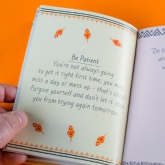 Be Patient
You're not always going
to get it right first time; you may
miss a day or mess up - that's okay
forgive yourself and don't let it stop
you from trying again tomorrow.